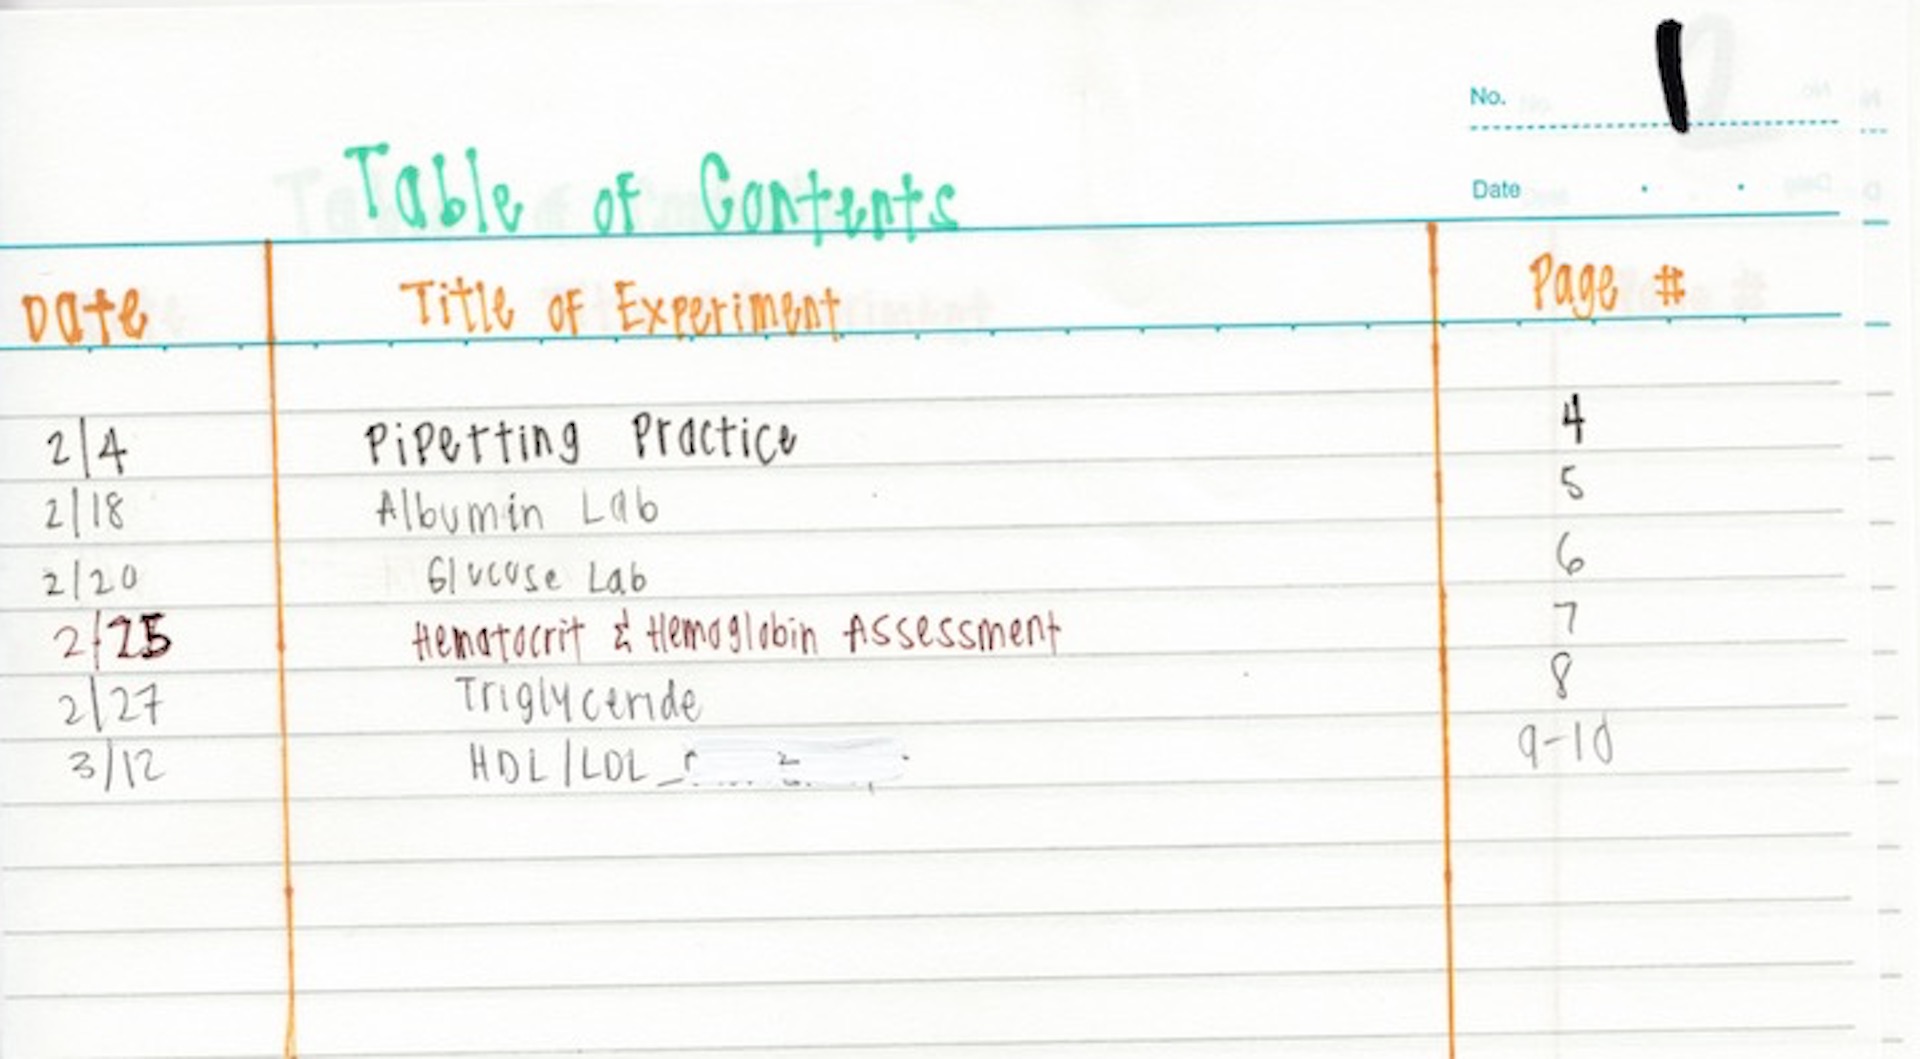 No. 1
Table of Contents
Date . .
Date Title of Experiment Page #
2/4 Pipetting Practice 4
2/18 Albumin Lab 5
2/20 Glucose Lab 6
2/25 Hematocrit & Hemoglobin Assessment 7
2/27 Triglyceride 8
3/12 HDL/LDL 9-10